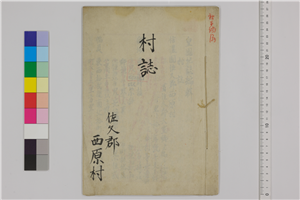 村誌
佐久郡
西原村